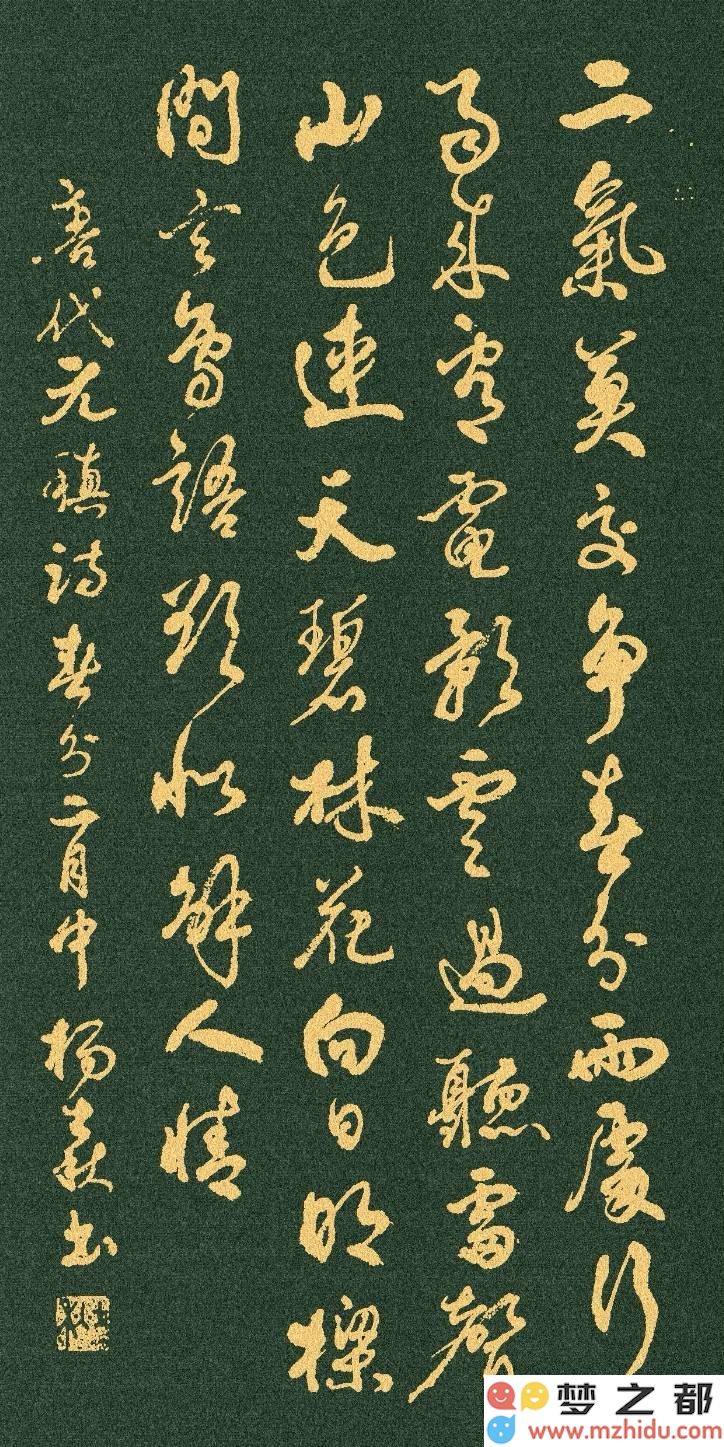 二氣莫交争春分雨處行
雨来看電影雲過聽雷聲
山色連天碧林花向日明樑
間玄鳥語欲似解人情
唐代元稹詩春分二月中 杨书
梦之都
www.mzhidu.com